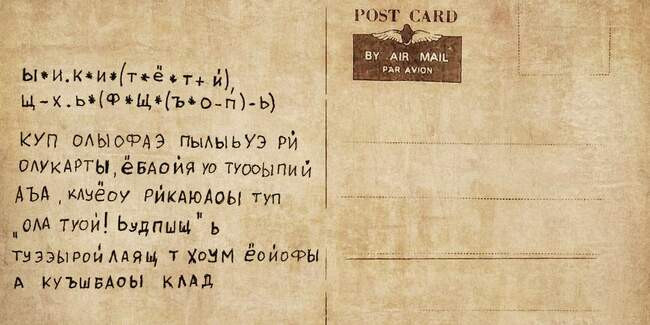 POST CARD
BY AIR MAIL
PAR AVION
Ы*И.К*И*(Т*Ё*Т+Й),
Щ-Х.Ь*(Ф*Щ*(Ъ*О-П)-Ь)
КУП ОЛЫОФАЭ ПЫЛЫЬУЭ РЙ
ОЛУКАРТЫ, ЁБАОЙЯ УО ТУООЫПИЙ
АЪА, КЛУЁОУ РЙКАЮАОЫ ТУП
"ОЛА ТУОЙ! ЬУДПШЩ" Ь
ТУЭЭЫРОЙ ЛАЯЩ Т ХОУМ ЁОЙОФЫ
А КУЪШБАОЫ КЛАД